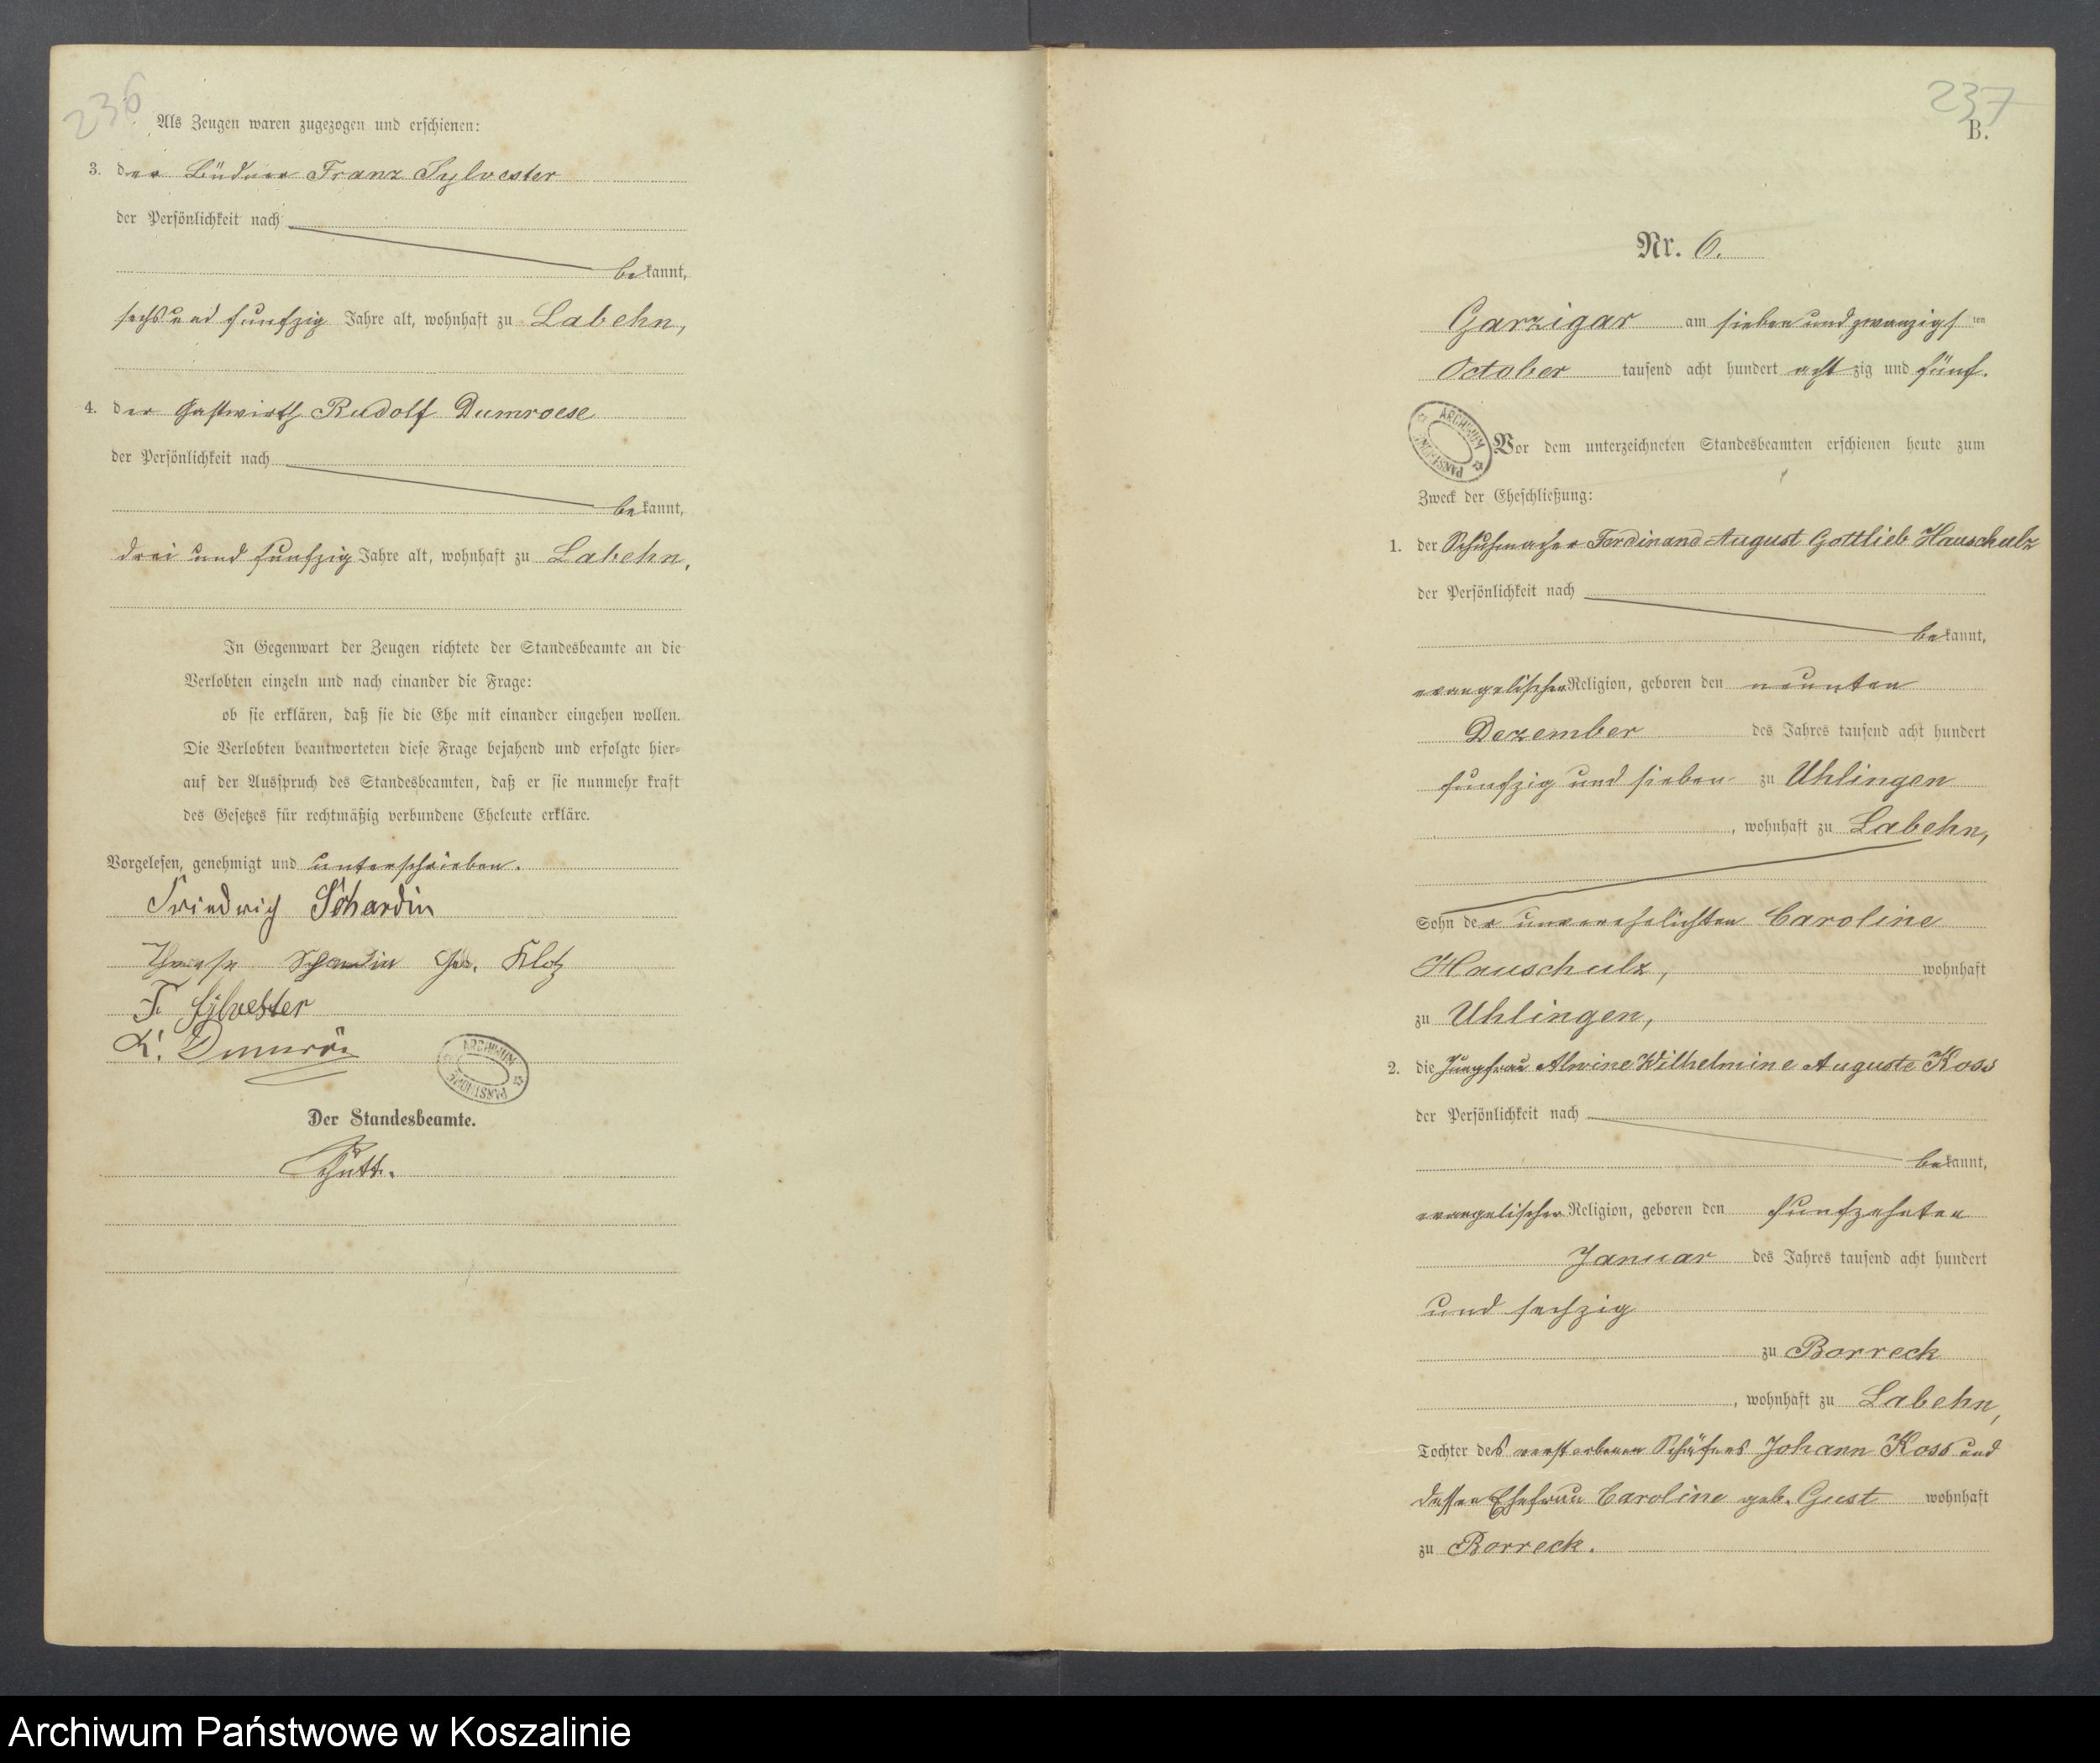 236
Als Zeugen waren zugezogen und erschienen:
3. der Büdner Franz Sylvester
der Persönlichkeit nach
bekannt,
sechs und funfzig Jahre alt, wohnhaft zu Labehn,
4. der Gastwirth Rudolf Dumroese
der Persönlichkeit nach
bekannt,
drei und funfzig Jahre alt, wohnhaft zu Labehn,
In Gegenwart der Zeugen richtete der Standesbeamte an die
Verlobten einzeln und nach einander die Frage:
ob sie erklären, daß sie die Ehe mit einander eingehen wollen.
Die Verlobten beantworteten diese Frage bejahend und erfolgte hier-
auf der Ausspruch des Standesbeamten, daß er sie nunmehr kraft
des Gesetzes für rechtmäßig verbundene Eheleute erkläre.
Vorgelesen, genehmigt und unterschrieben.
Friedrich Schardin
Schardin geb. Klotz
F. Sylvester
R. Dumröse
ARCHIWUM PAŃSTWOWE
Der Standesbeamte.
237
B.
Nr. 6.
Garzigar am sieben und zwanzigsten
October tausend acht hundert achtzig und fünf.
ARCHIWUM PAŃSTWOWE
Vor dem unterzeichneten Standesbeamten erschienen heute zum
Zweck der Eheschließung:
1. der Schuhmacher Ferdinand August Gottlieb Hauschulz
der Persönlichkeit nach
bekannt,
evangelischer Religion, geboren den neunten
Dezember des Jahres tausend acht hundert
funfzig und sieben zu Uhlingen
, wohnhaft zu Labehn,
Sohn der unverehelichten Caroline
Hauschulz, wohnhaft
zu Uhlingen,
2. die Jungfrau Alwine Wilhelmine Auguste Koss
der Persönlichkeit nach
bekannt,
evangelischer Religion, geboren den funfzehnten
Januar des Jahres tausend acht hundert
und sechzig
zu Borreck
, wohnhaft zu Labehn,
Tochter des verstorbenen Schäfers Johann Koss und
dessen Ehefrau Caroline geb. Gust wohnhaft
zu Borreck.
Archiwum Państwowe w Koszalinie